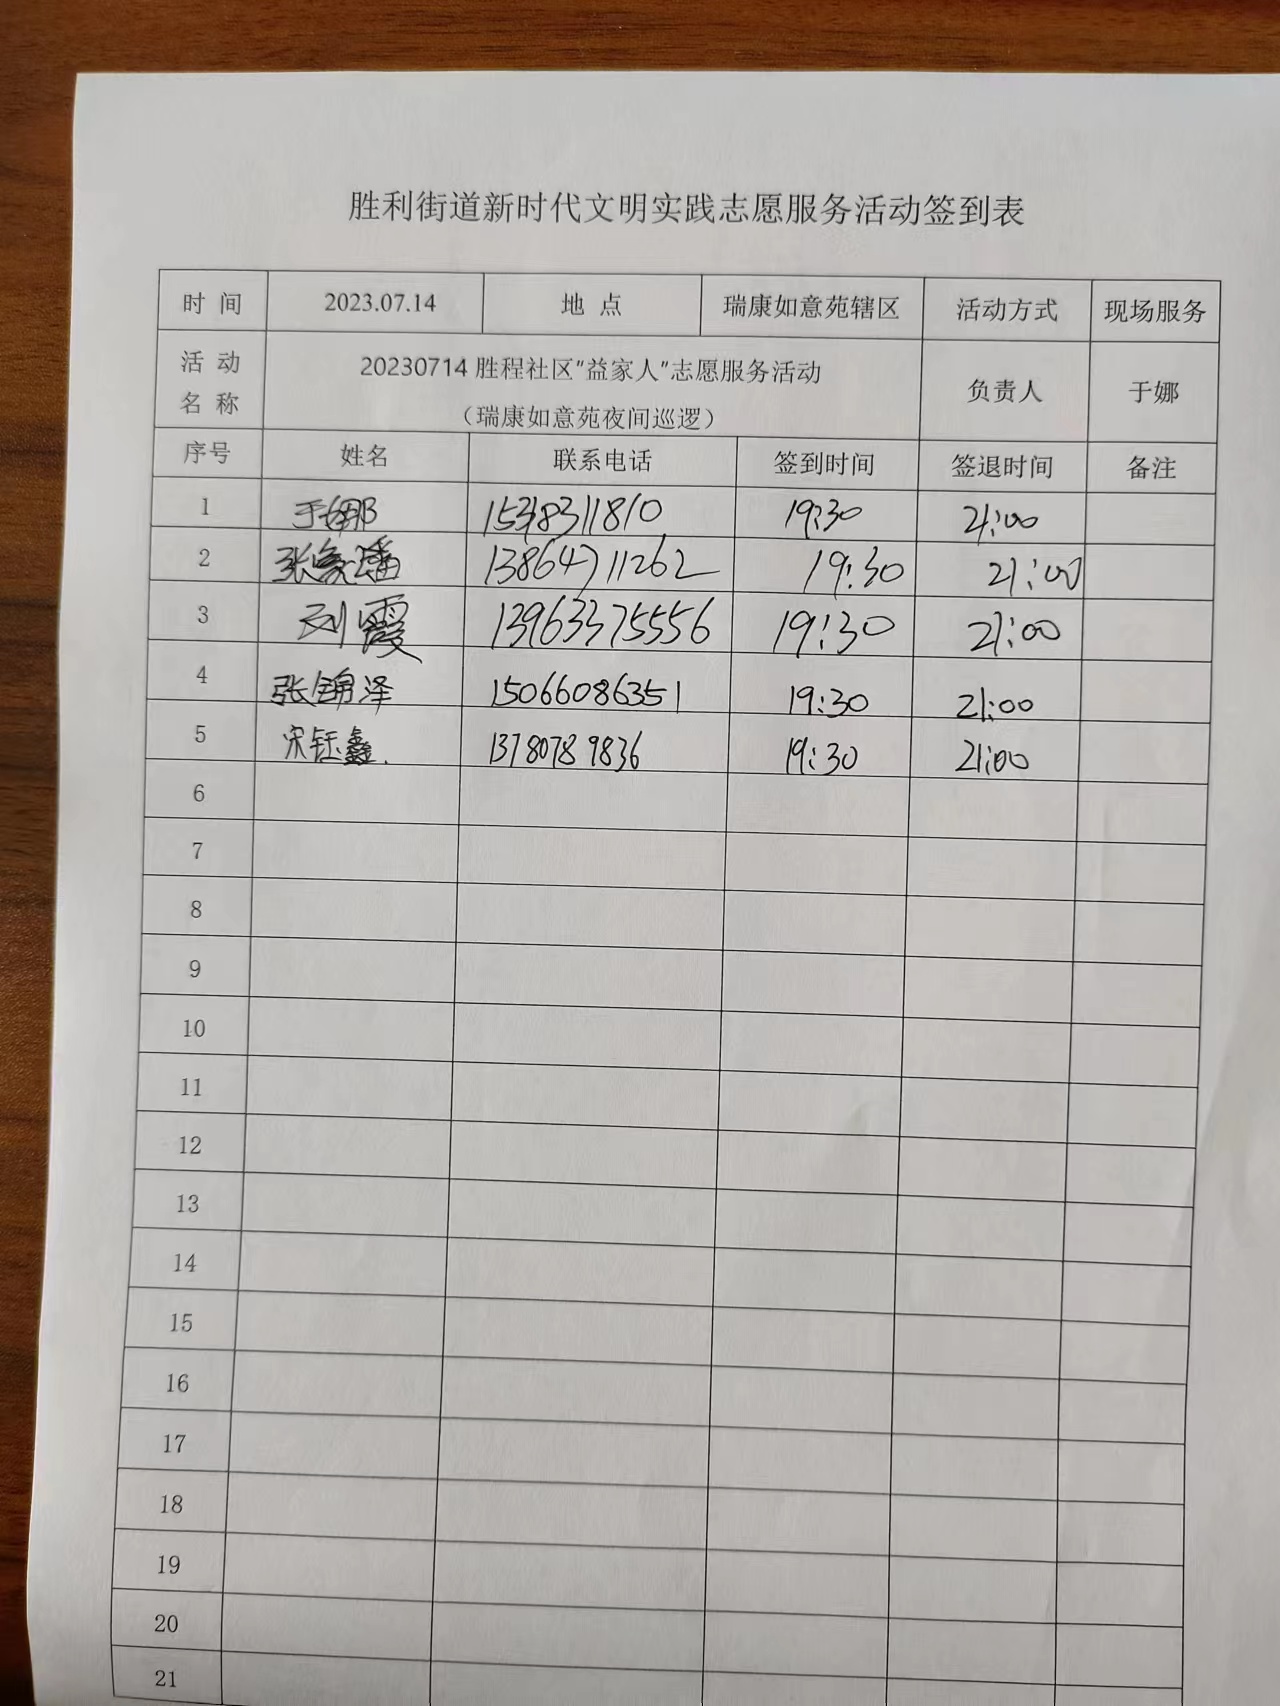 胜利街道新时代文明实践志愿服务活动签到表
时 间 2023.07.14 地 点 瑞康如意苑辖区 活动方式 现场服务
活 动 名 称 20230714 胜程社区"益家人"志愿服务活动 负责人 于娜
（瑞康如意苑夜间巡逻）
序号 姓名 联系电话 签到时间 签退时间 备注
1 于娜 15318311810 19:30 21:00
2 13864711262 19:30 21:00
3 刘霞 13963375556 19:30 21:00
4 张锦泽 15066086351 19:30 21:00
5 宋钰鑫. 13780789836 19:30 21:00
6
7
8
9
10
11
12
13
14
15
16
17
18
19
20
21